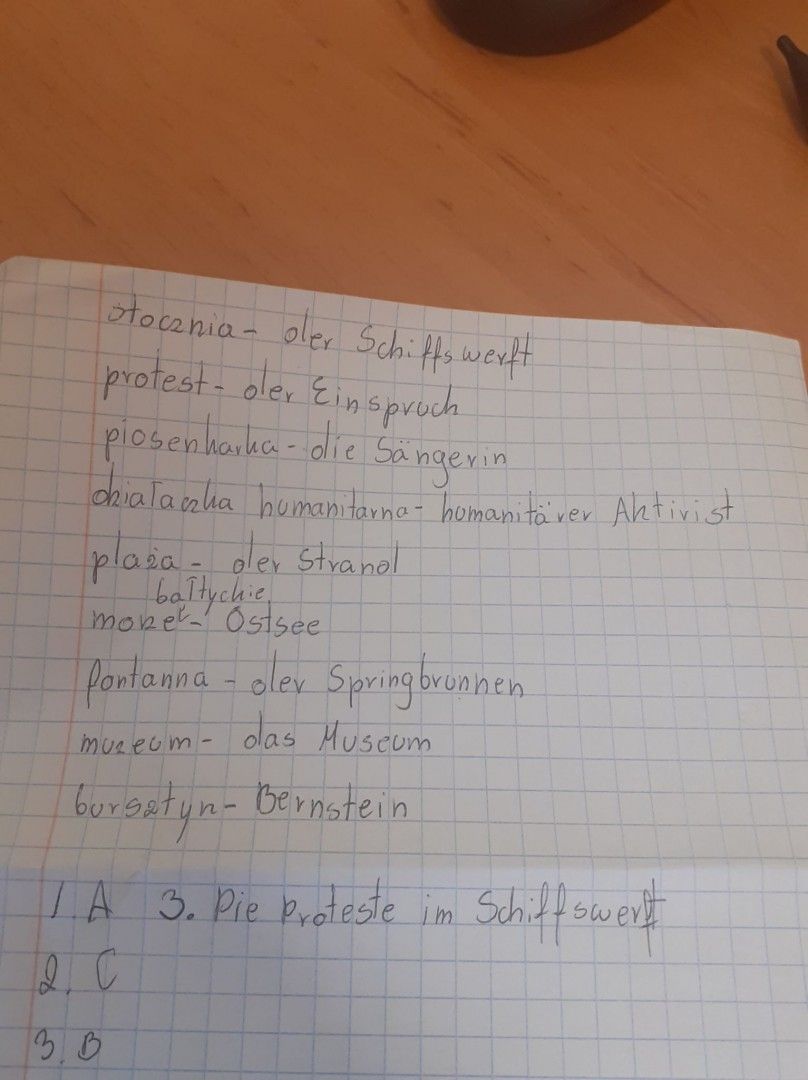 stocznia - der Schiffswerft
protest - der Einspruch
piosenkarka - die Sängerin
działaczka humanitarna - humanitärer Aktivist
plaża - der Strand
bałtyckie
morze - Ostsee
fontanna - der Springbrunnen
muzeum - das Museum
bursztyn - Bernstein
1. A 3. Die Proteste im Schiffswerft
2. C
3. B